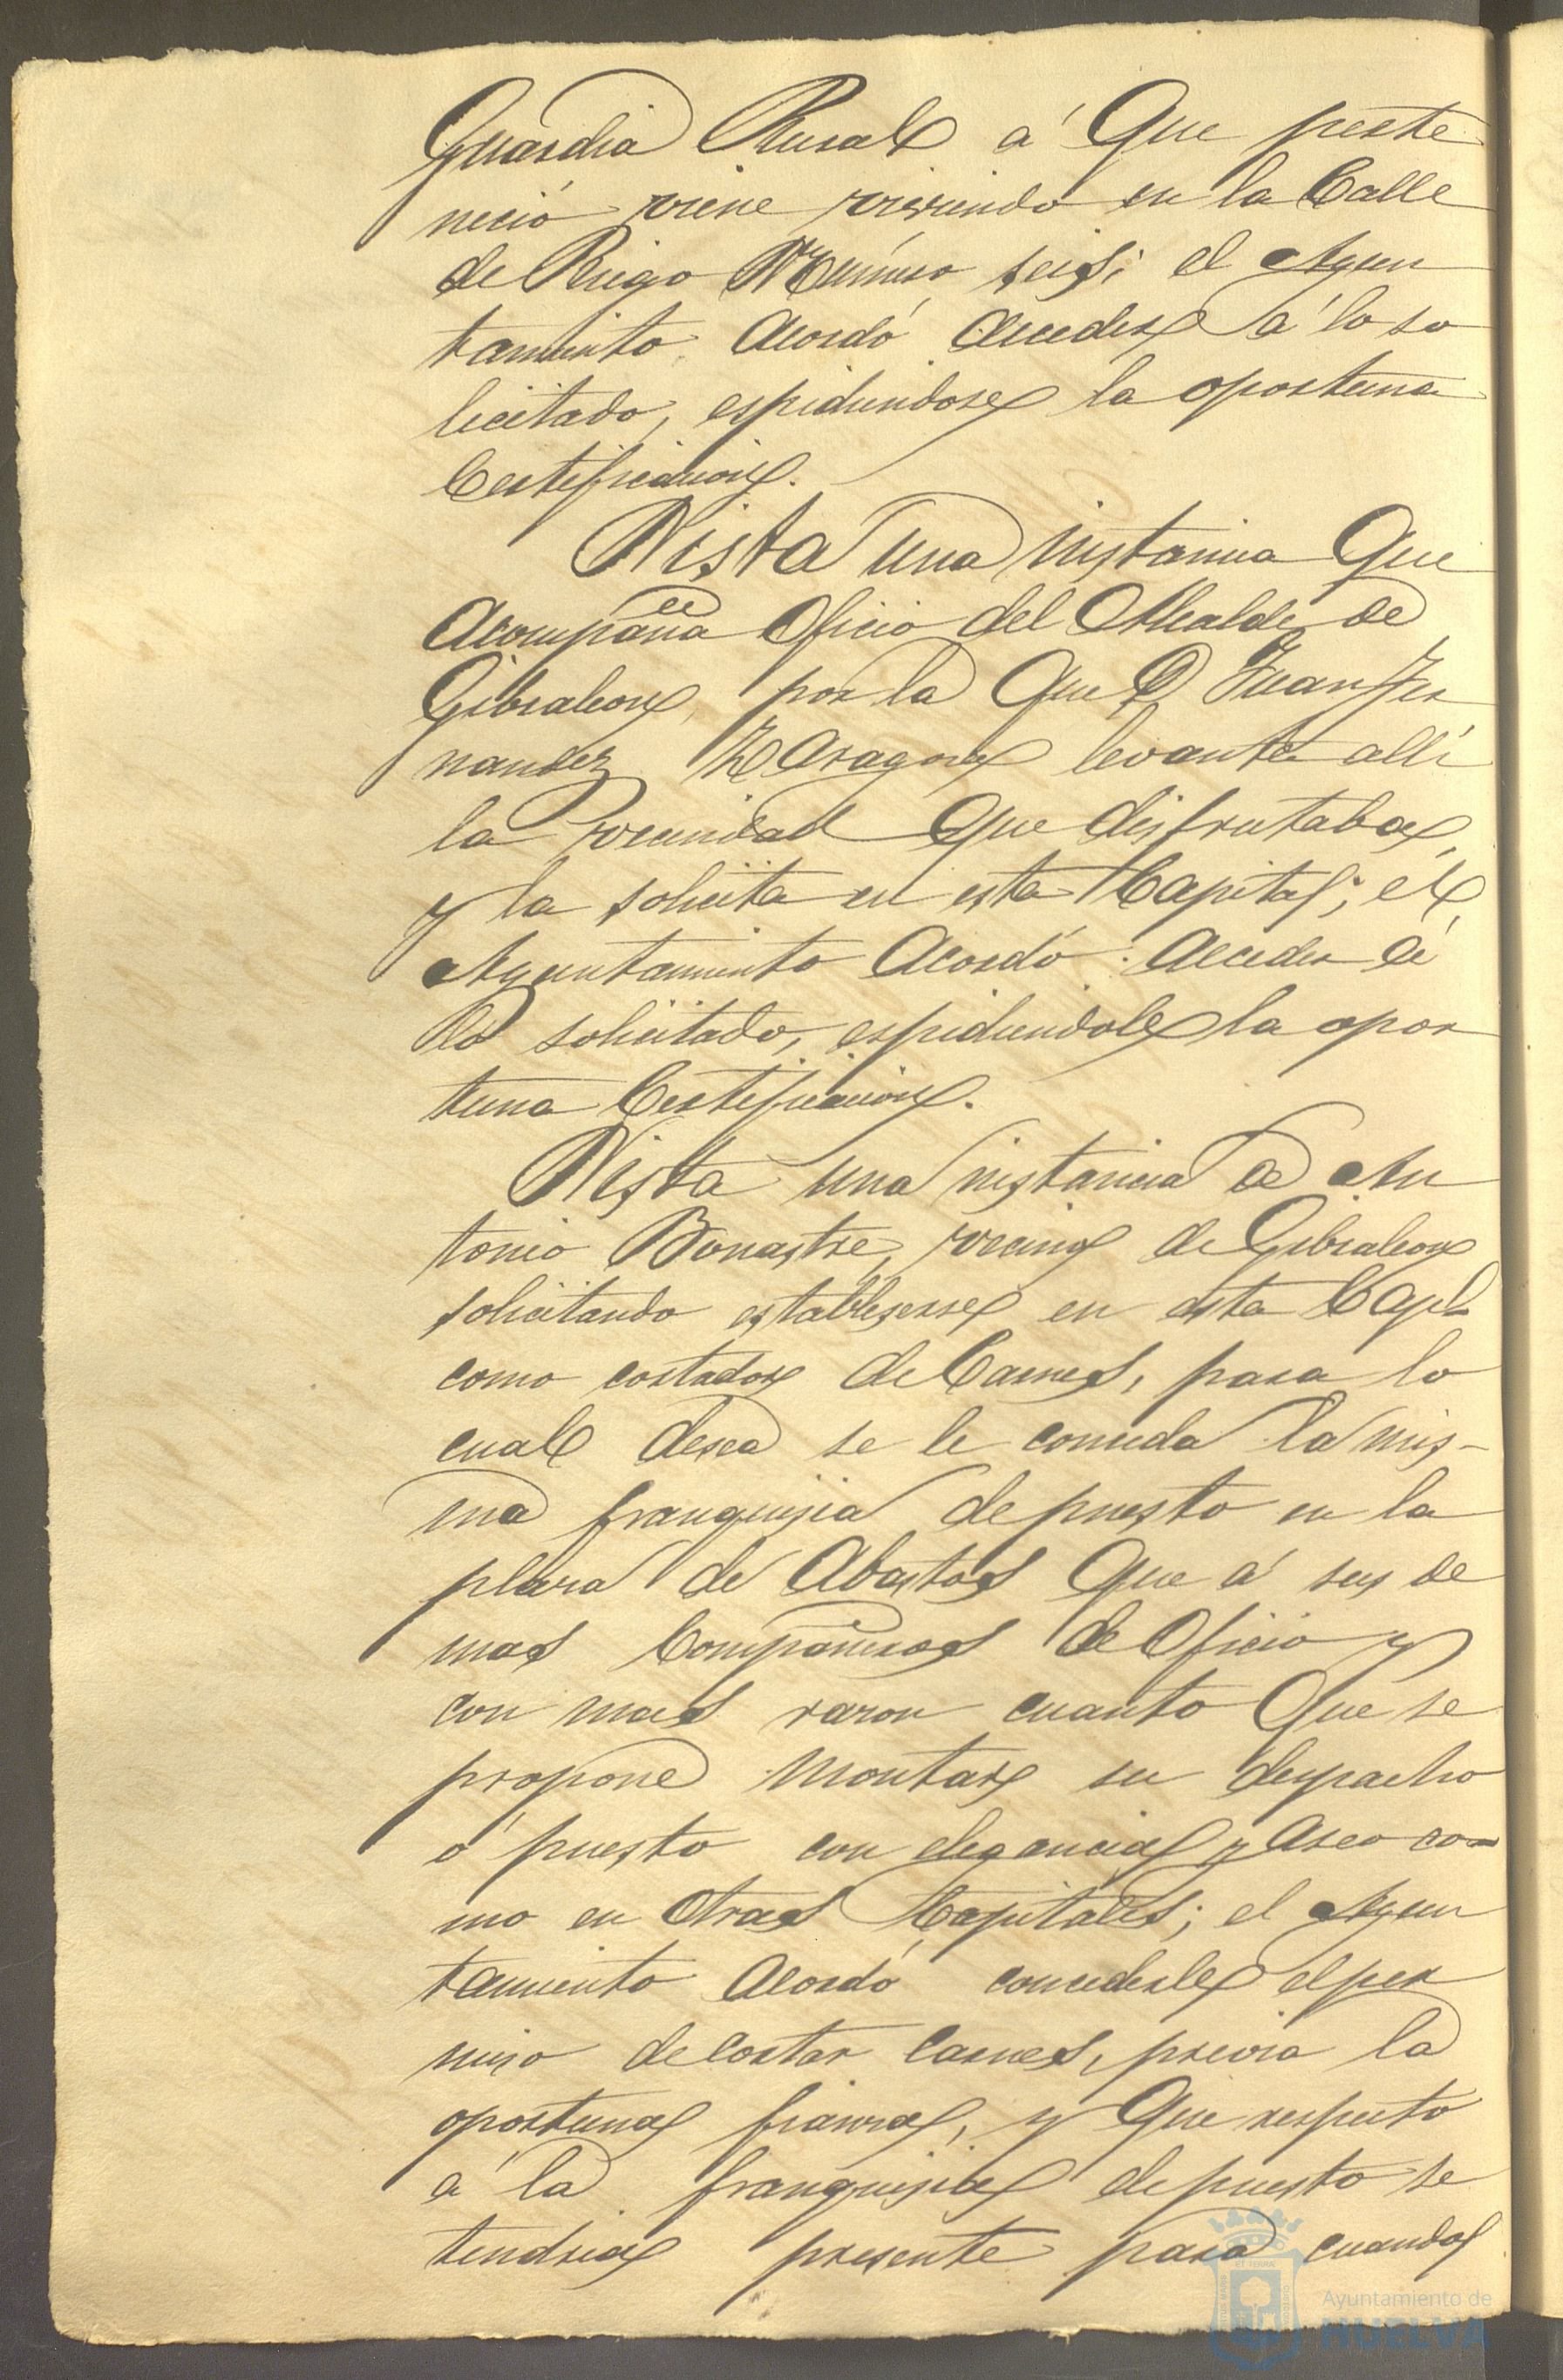 Guardia Rural á Que perte
neció viene viviendo en la Calle
de Riego Número seis; el Ayun
tamiento Acordó Acceder á lo so
licitado, espidiendose la oportuna
Certificacion.
Vista una instancia Que
Acompaña Oficio del Alcalde de
Gibraleon, por la Que D Juan Fer
nandez Aragon levanta allí
la vecindad Que disfrutaba,
y la solicita en esta Capital; el
Ayuntamiento Acordó: Acceder á
lo solicitado, espidiendole la opor
tuna Certificacion.
Vista una instancia de An
tonio Bonastre, vecino de Gibraleon
solicitando establecerse en esta Capl.
como cortador de Carnes, para lo
cual desea se le conceda la mis-
ma franquisia de puesto en la
plaza de Abastos Que á sus de
mas Compañeros de Oficio y
con mas razon cuanto Que se
propone Montar su despacho
ó puesto con elegancia y Aseo co-
mo en Otras Capitales; el Ayun
tamiento Acordó concederle el per
miso de cortar Carnes, previa la
oportuna fianza, y Que respecto
á la franquisia de puesto se
tendria presente para cuando
Ayuntamiento de
HUELVA